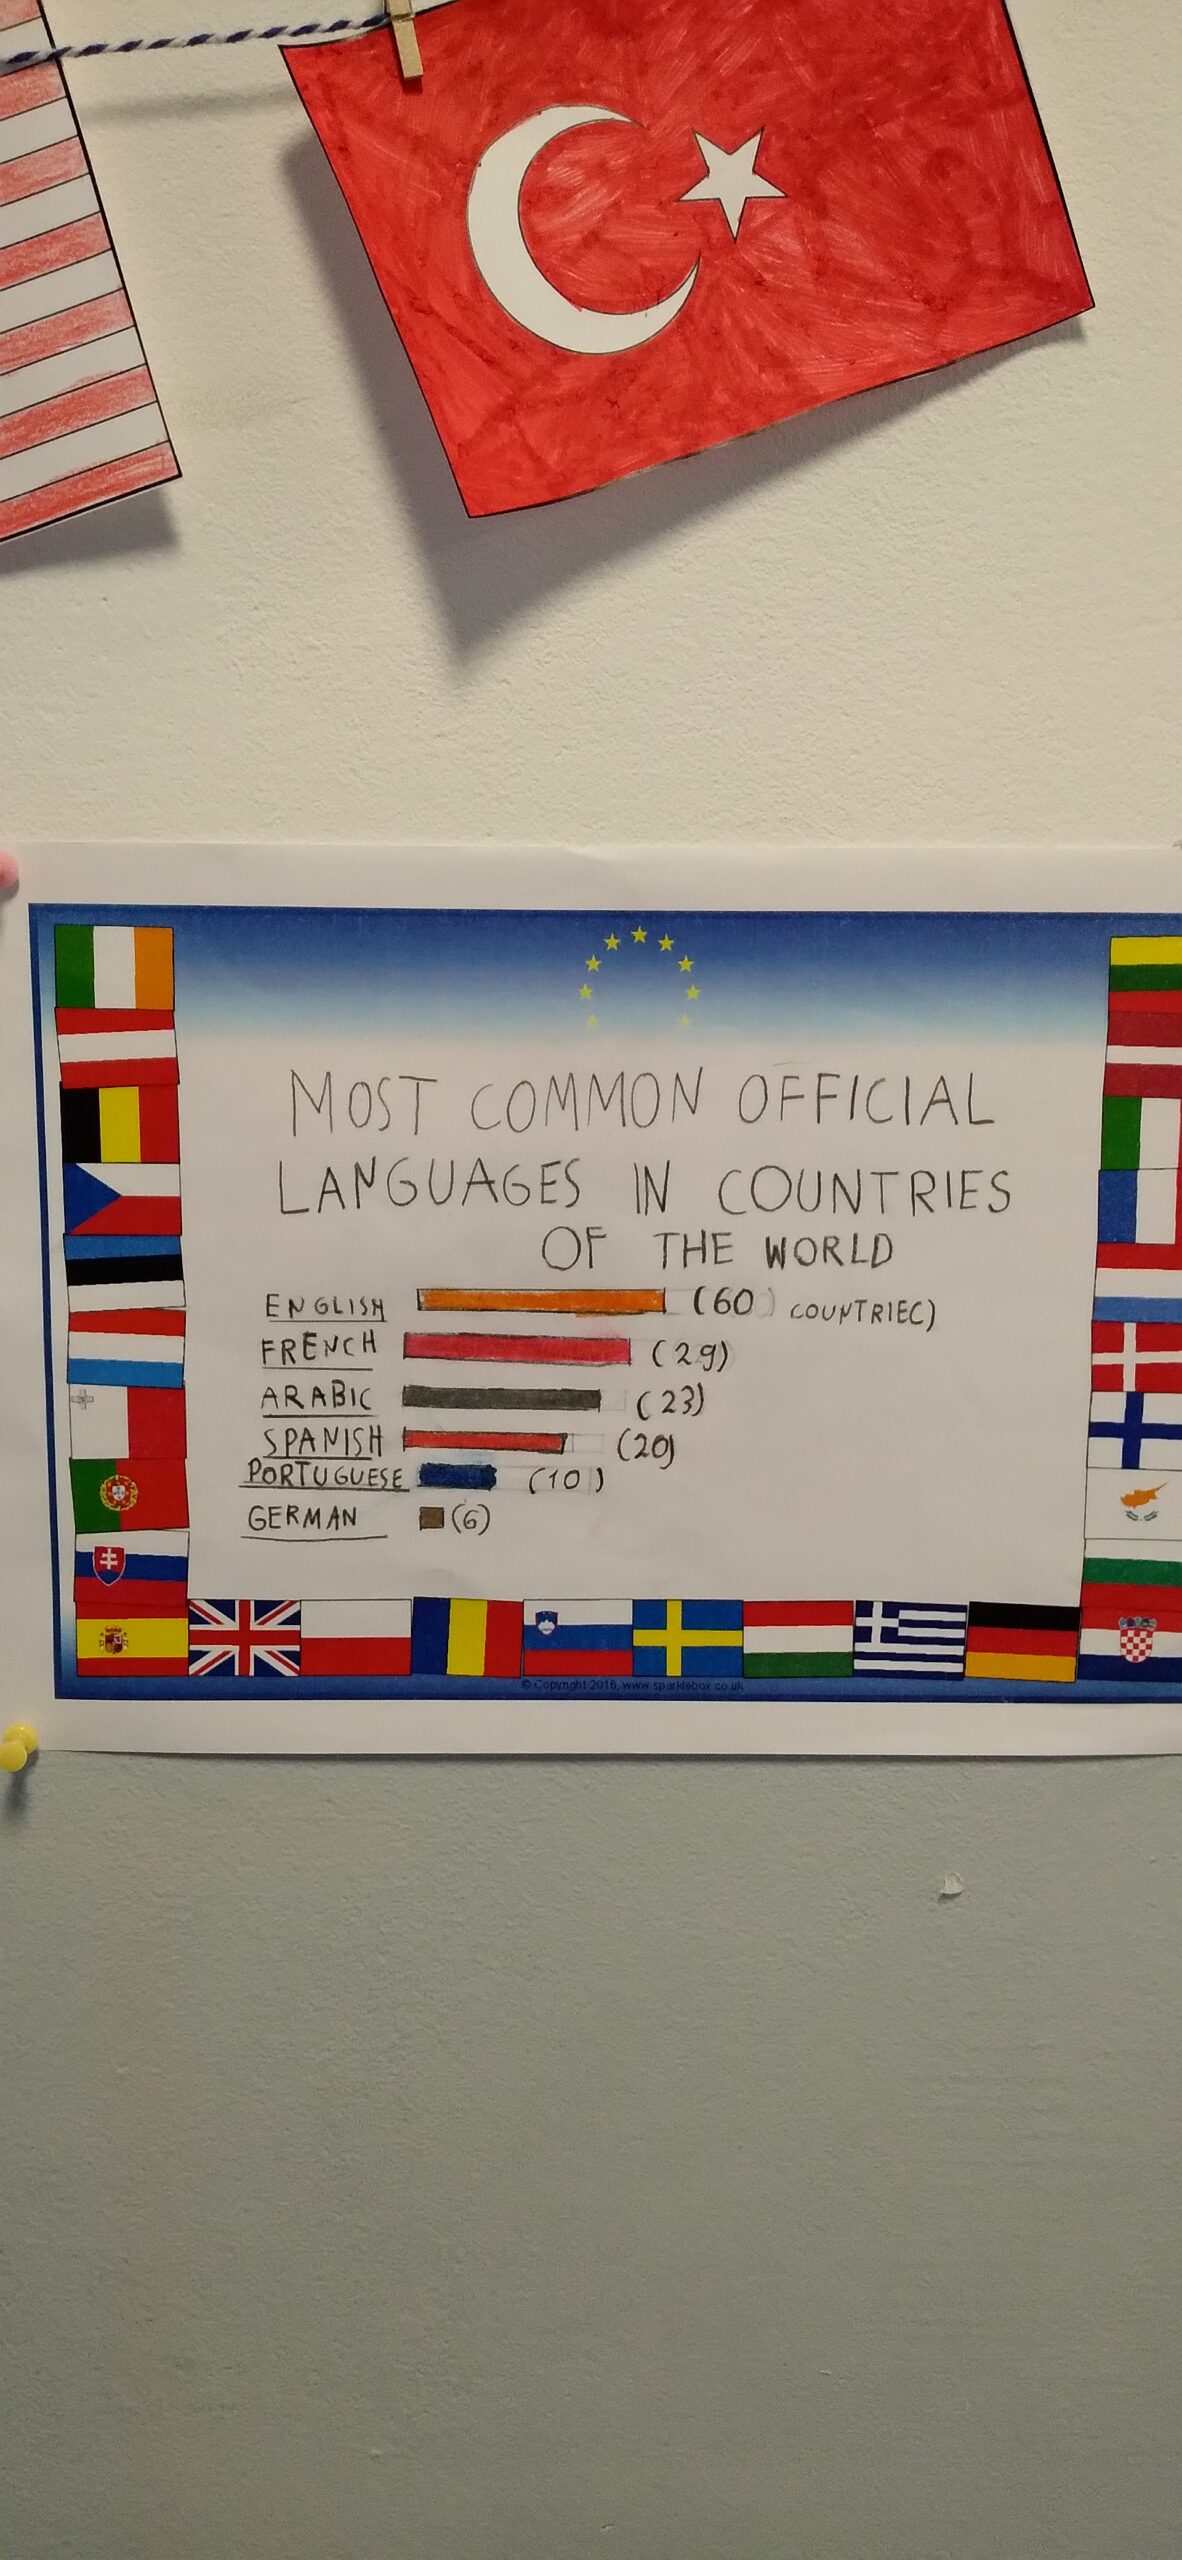 MOST COMMON OFFICIAL
LANGUAGES IN COUNTRIES
OF THE WORLD
ENGLISH (60 COUNTRIEC)
FRENCH (29)
ARABIC (23)
SPANISH (20)
PORTUGUESE (10)
GERMAN (6)
© Copyright 2016, www.sparklebox.co.uk